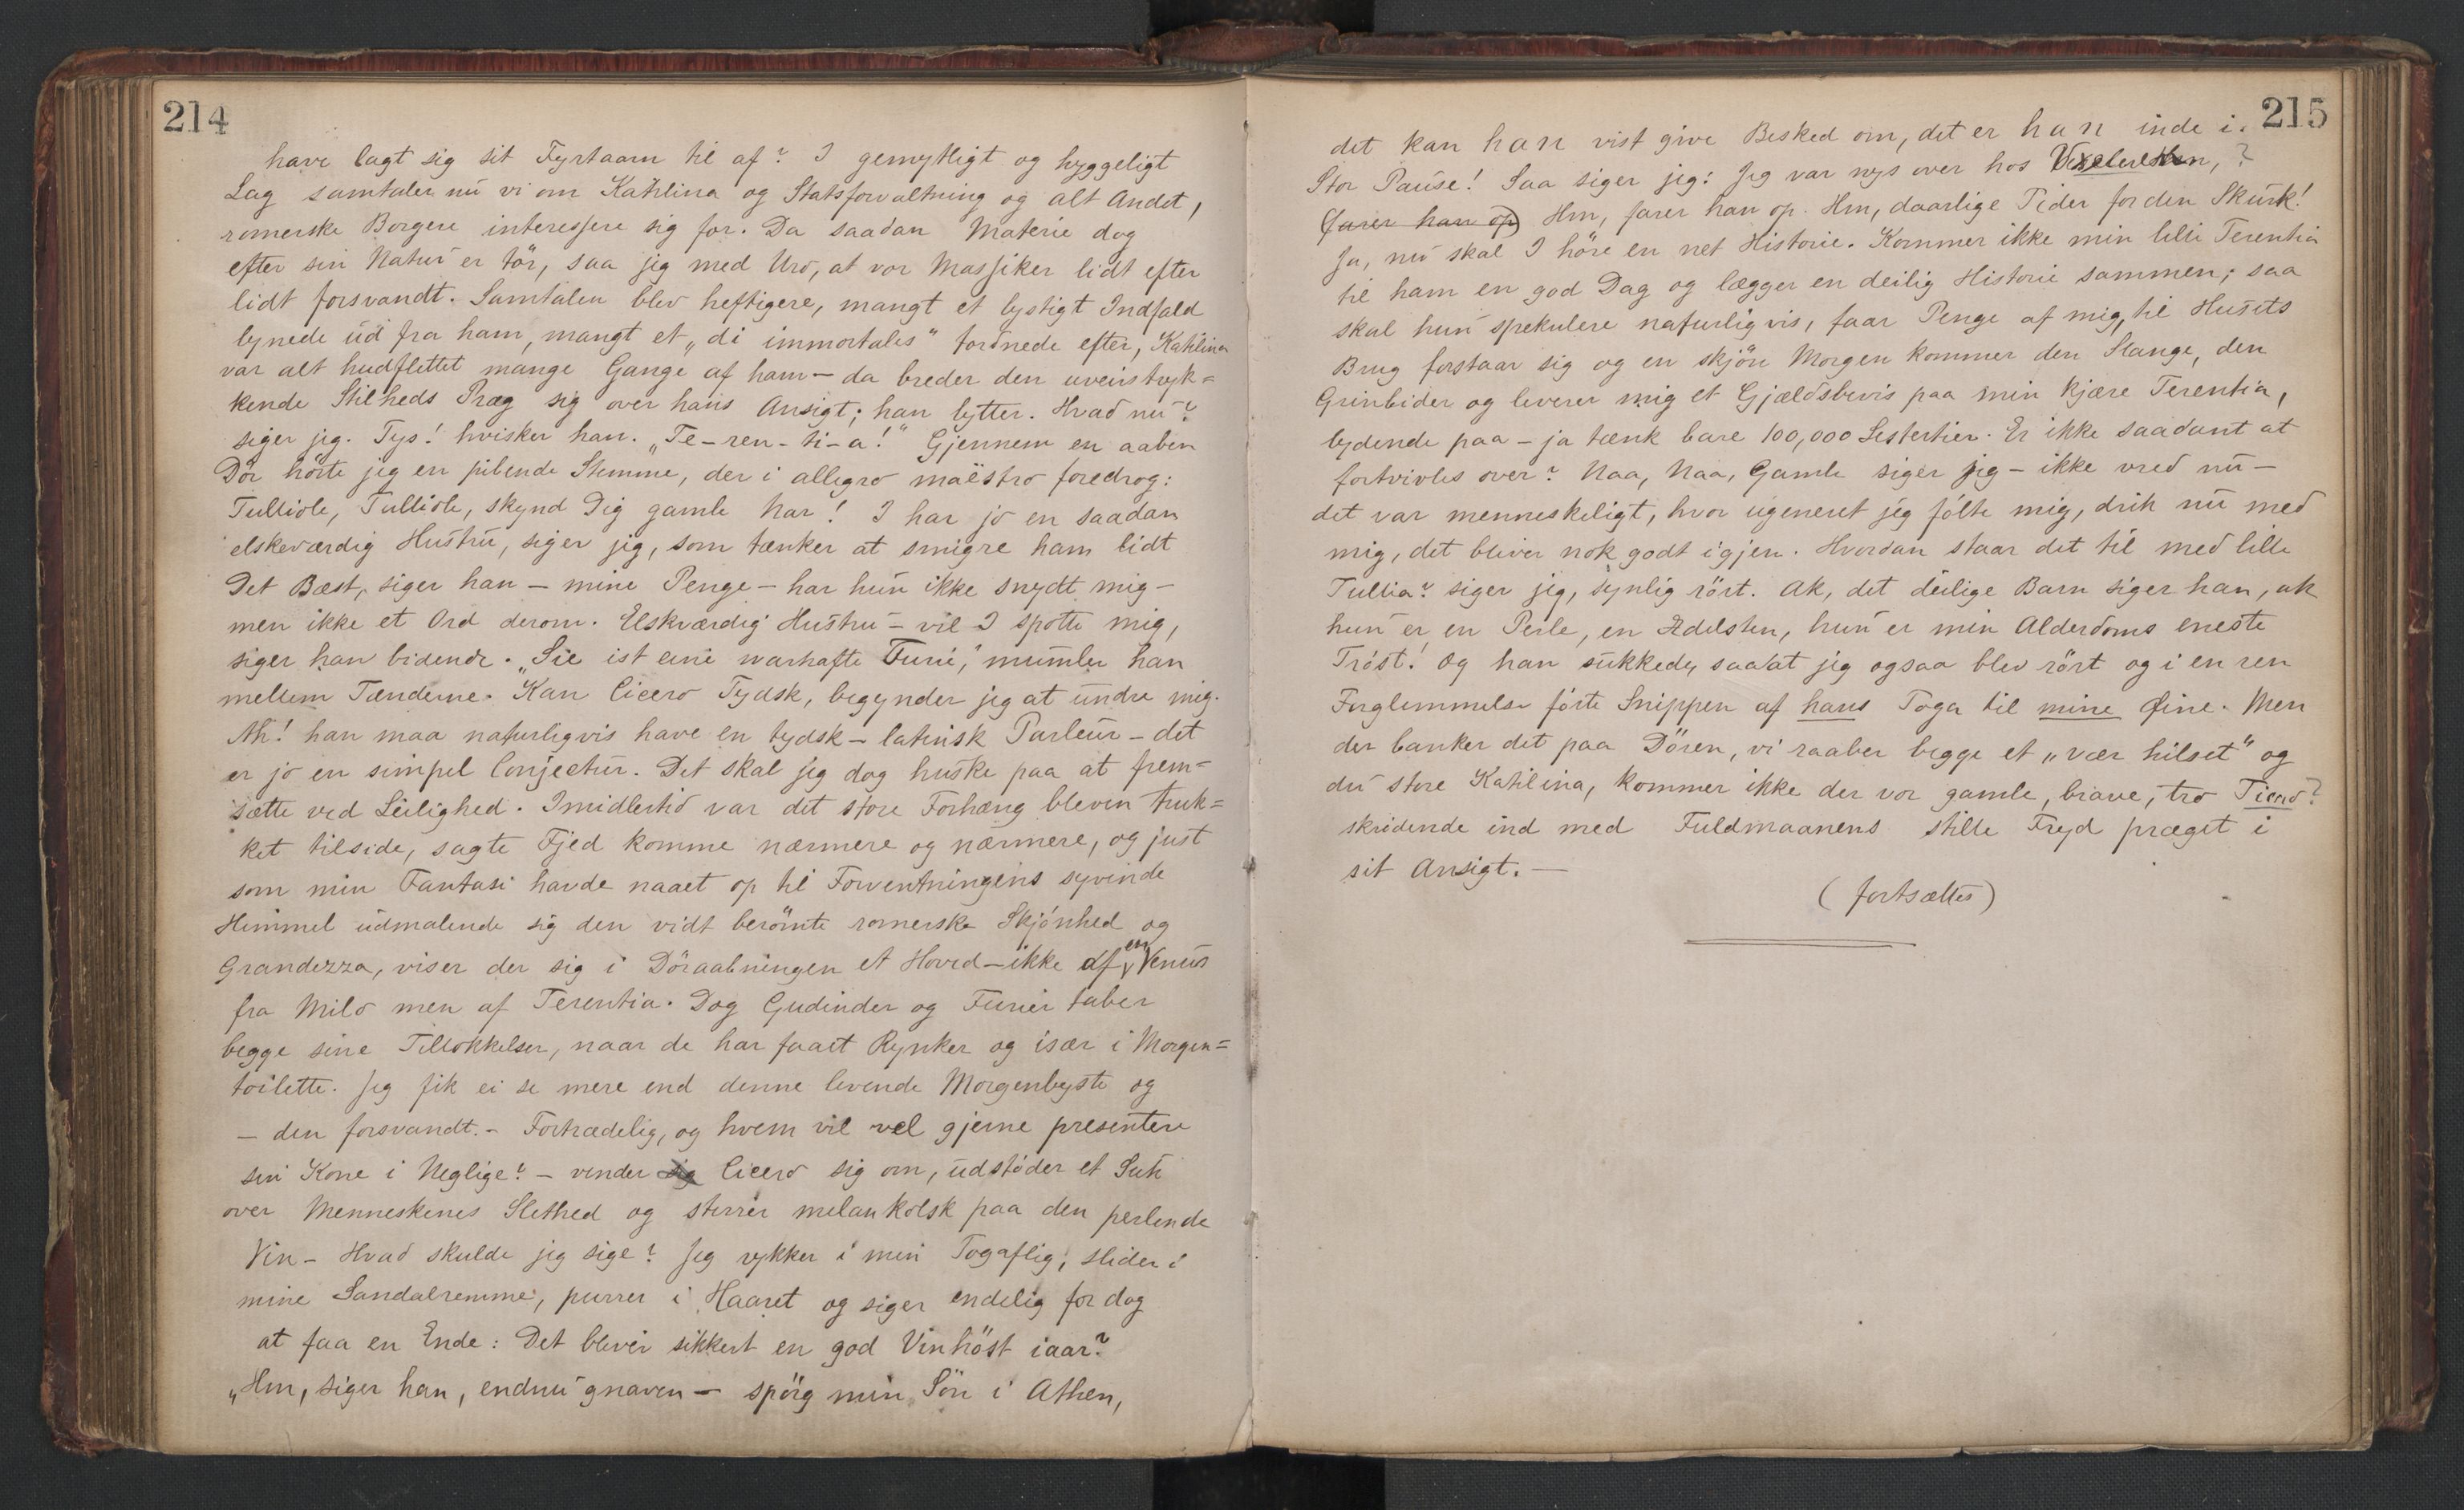 214
have lagt sig sit Fyrtaarn til af? I gemytligt og hyggeligt
Lag samtaler nu vi om Katilina og Statsforvaltning og alt Andet,
romerske Borgere interessere sig for. Da saadan Materie dog
efter sin Natur er tör, saa jeg med Uro, at vor Massiker lidt efter
lidt forsvandt. Samtalen blev heftigere, mangt et lystigt Indfald
lynede ud fra ham, mangt et „di immortales" tordnede efter, Katilina
var alt hudflettet mange Gange af ham — da breder den uveirstryk=
kende Stilheds Præg sig over hans Ansigt; han lytter. Hvad nu?
siger jeg. Tys! hvisker han. „Te-ren-ti-a!" Gjennem en aaben
Dör hörte jeg en pibende Stemme, der i allegro maëstro foredrog:
Tulliole, Tulliole, skynd Dig gamle Nar! I har jo en saadan
elskværdig Hustru, siger jeg, som tænker at smigre ham lidt
Det Bæst, siger han — mine Penge — har hun ikke snydt mig —
men ikke et Ord derom. Elskværdig Hustru — vil I spotte mig,
siger han bidende. „Sie ist eine warhafte Furie," mumler han
mellem Tænderne. Kan Cicero Tydsk, begynder jeg at undre mig.
Ah! han maa naturligvis have en tydsk-latinsk Parleur — det
er jo en simpel Conjectur. Det skal jeg dog huske paa at frem=
sætte ved Leilighed. Imidlertid var det store Forhæng bleven truk=
ket tilside, sagte Fjed komme nærmere og nærmere, og just
som min Fantasi havde naaet op til Forventningens syvende
Himmel udmalende sig den vidt berömte romerske Skjönhed og
Grandezza, viser der sig i Döraabningen et Hoved — ikke af en Venus
fra Milo men af Terentia. Dog Gudinder og Furier taber
begge sine Tillokkelser, naar de har faaet Rynker og især i Morgen=
toilette. Jeg fik ei se mere end denne levende Morgenbyste og
— den forsvandt. — Fortrædelig, og hvem vil vel gjerne presentere
sin Kone i Neglige? — vender sig Cicero sig om, udstöder et Suk
over Menneskenes Slethed og stirrer melankolsk paa den perlende
Vin — Hvad skulde jeg sige? Jeg rykker i min Togaflig, slider i
mine Sandalremme, purrer i Haaret og siger endelig for dog
at faa en Ende: Det blever sikkert en god Vinhöst iaar?
„Hm, siger han, endnu gnaven — spörg min Sön i Athen,
215
det kan han vist give Besked om, det er han inde i.
Stor Pause! Saa siger jeg: Jeg var nys over hos
(farer han op) Hm, farer han op. Hm, daarlige Tider for den Skurk!
Ja, nu skal I höre en net Historie. Kommer ikke min lille Terentia
til ham en god Dag og lægger en deilig Historie sammen; saa
skal hun spekulere naturligvis, faar Penge af mig, til Husets
Brug forstaar sig og en skjön Morgen kommer den Slange, den
Grinbider og leverer mig et Gjældsbevis paa min kjære Terentia,
lydende paa — ja tænk bare 100,000 Sestertier. Er ikke saadant at
fortvivles over? Naa, Naa, Gamle siger jeg — ikke vred nu —
det var menneskeligt, hvor ugeneret jeg fölte mig, drik nu med
mig, det bliver nok godt igjen. Hvordan staar det til med lille
Tullia? siger jeg, synlig rört. Ak, det deilige Barn siger han, ak
hun er en Perle, en Ædelsten, hun er min Alderdoms eneste
Tröst! Og han sukkede, saa at jeg ogsaa blev rört og i en ren
Forglemmelse förte Snippen af hans Toga til mine Øine. Men
der banker det paa Dören, vi raaber begge et „vær hilset" og
du store Katilina, kommer ikke der vor gamle, brave, tro Tiero?
skridende ind med Fuldmaanens stille Fryd præget i
sit Ansigt. —
(fortsættes)